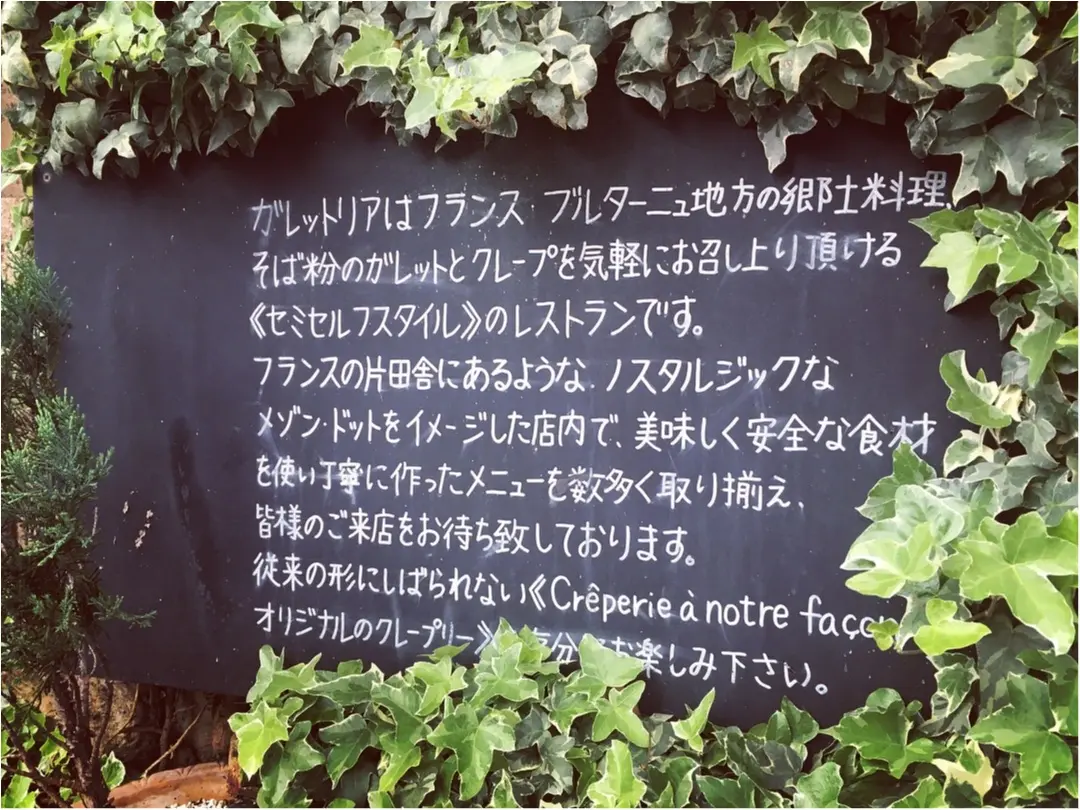 ガレットリアはフランス・ブルターニュ地方の郷土料理、
そば粉のガレットとクレープを気軽にお召し上り頂ける
《セミセルフスタイル》のレストランです。
フランスの片田舎にあるような、ノスタルジックな
メゾン・ドットをイメージした店内で、美味しく安全な食材
を使い丁寧に作ったメニューを数多く取り揃え、
皆様のご来店をお待ち致しております。
従来の形にしばられない《Crêperie à notre
オリジナルのクレープリー》 お楽しみ下さい。